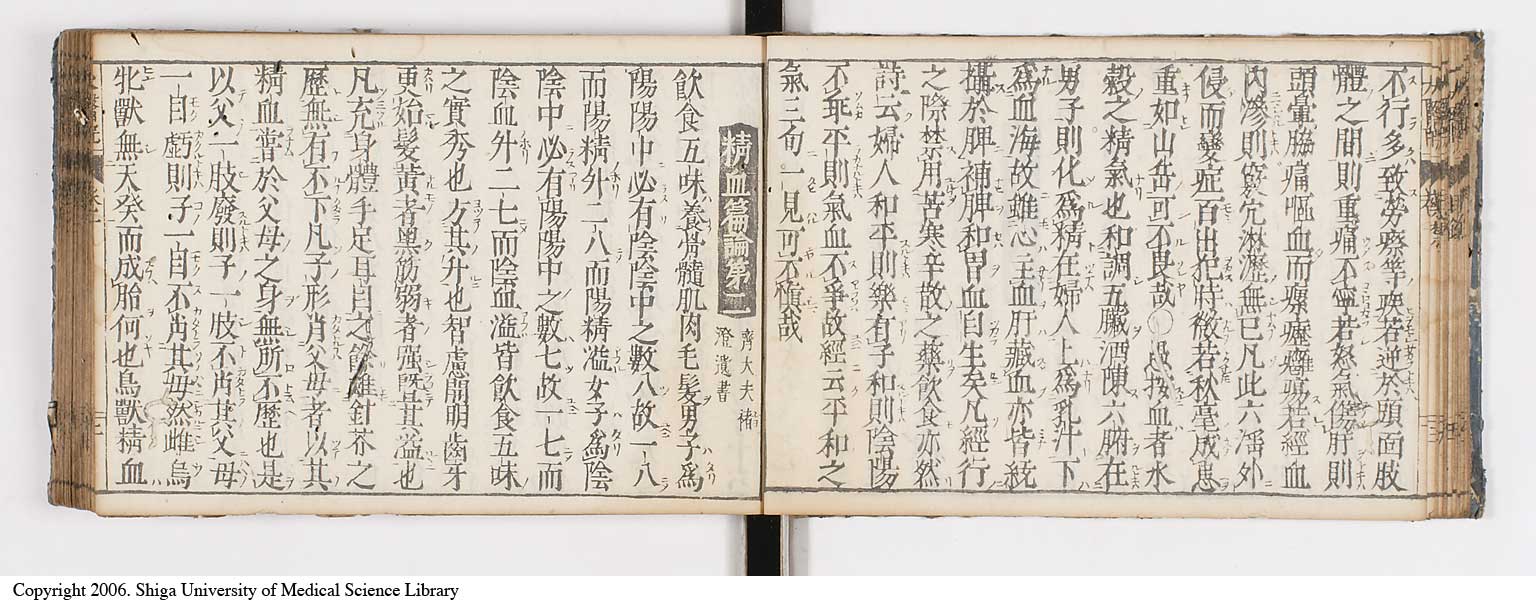 不行多致勞瘵等疾若逆於頭面肢
體之間則重痛不寧若怒氣傷肝則
頭暈脇痛嘔血而瘰癧癰瘍若經血
内滲則竅穴淋瀝無已凡此六淫外
侵而變症百出犯時微若秋毫成患
重如山岳可不畏哉〇愚按血者水
穀之精氣也和調五臟洒陳六腑在
男子則化爲精在婦人上爲乳汁下
爲血海故雖心主血肝藏血亦皆統
攝於脾補脾和胃血自生矣凡經行
之際禁用苦寒辛散之藥飲食亦然
詩云婦人和平則樂有子和則陰陽
不乖平則氣血不爭故經云平和之
氣三旬一見可不愼哉
精血篇論第二 齊大夫褚澄遺書
飲食五味養骨髓肌肉毛髮男子爲
陽陽中必有陰陰中之數八故一八
而陽精升二八而陽精溢女子爲陰
陰中必有陽陽中之數七故一七而
陰血升二七而陰血溢皆飲食五味
之實秀也方其升也智慮開明齒牙
更始髮黄者黑筋弱者强曁其溢也
凡充身體手足耳目之餘雖針芥之
歷無有不下凡子形肖父母者以其
精血嘗於父母之身無所不歷也是
以父一肢廢則子一肢不肖其父母
一目虧則子一目不肖其母然雌鳥
牝獸無天癸而成胎何也鳥獸精血
Copyright 2006. Shiga University of Medical Science Library